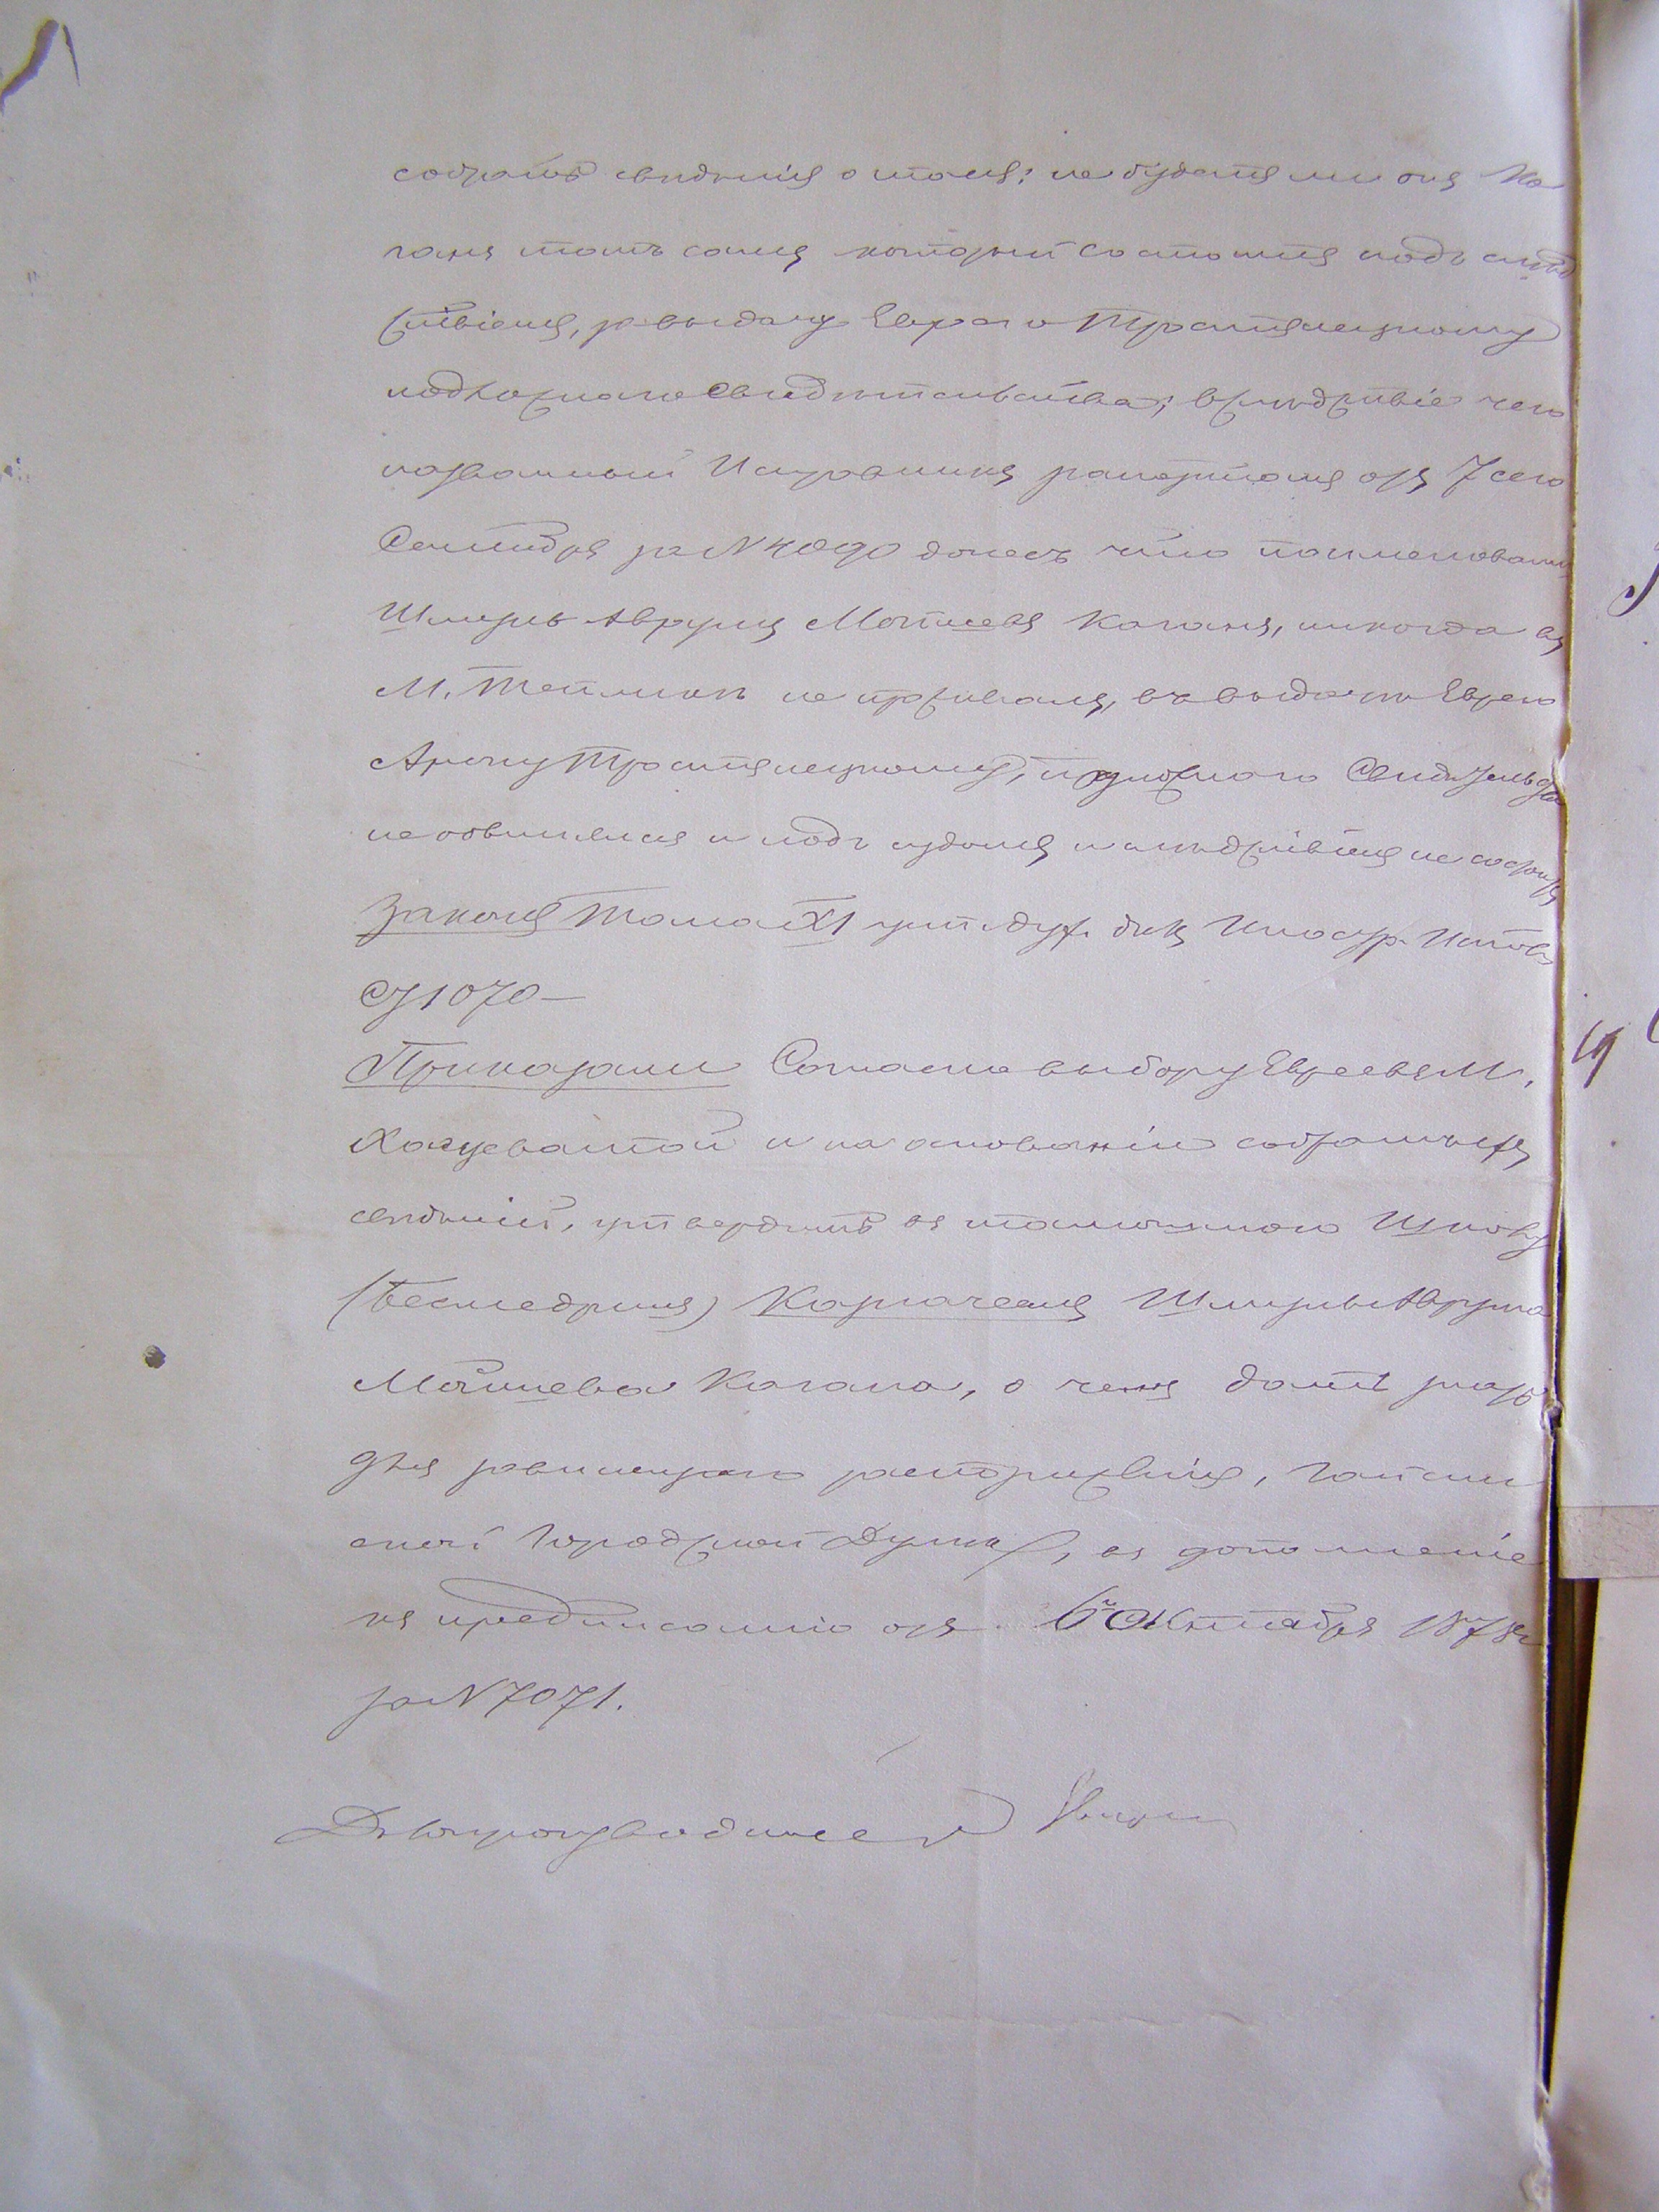 собрать свѣдѣнія о томъ: не будетъ ли онъ Ко
ганъ тотъ самый который состоитъ подъ слѣд
ствіемъ, за выдачу Еврею Тростянецкому
подложнаго свидѣтельства; вслѣдствіе чего
названный Исправникъ рапортомъ отъ 7 сего
Сентября за N 4090 донесъ что поименован
Шмуль Аврумъ Мошковъ Коганъ, никогда въ
М. Тепликъ не проживалъ, въ выдачѣ Еврею
Арону Тростянецкому, подложнаго Свидѣтельства
не обвинялся и подъ судомъ и слѣдствіемъ не состоитъ
Законъ Тома XI уст. дух. дѣл. Иностр. Испов.
ст 1070 —
Приказали Согласно выбору Евреевъ М.
Хащеватой и на основаніи собранныхъ
свѣдѣній, утвердить въ тамошнюю Школу
Казначеемъ Шмуля Аврума
Мошкова Когана, о чемъ дать знать
для зависящаго распоряженія, Гайсин
ской Городской Думѣ, въ дополненіе
къ предписанію отъ 6го Октября 1878 г
за N 7071.
Дѣлопроизводитель